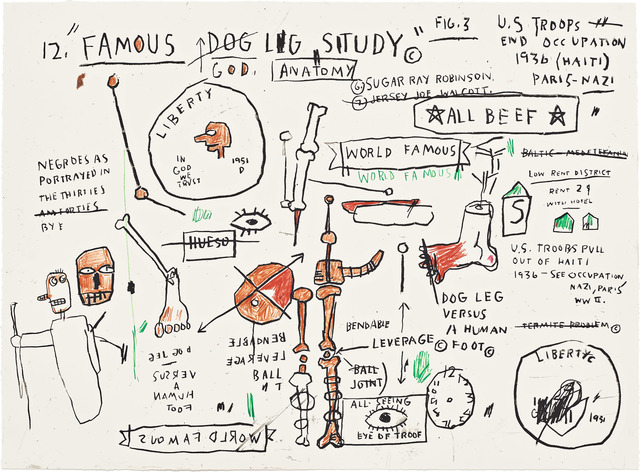 12. "FAMOUS DOG LEG STUDY" ©
FIG. 3
GOD.
ANATOMY
⑥ SUGAR RAY ROBINSON.
⑦ JERSEY JOE WALCOTT.
U.S. TROOPS
END OCCUPATION
1936 (HAITI)
PARIS-NAZI
☆ALL BEEF☆
LIBERTY
IN
GOD
WE
TRUST
1951
D
WORLD FAMOUS
WORLD FAMOUS
NEGROES AS
PORTRAYED IN
THE THIRTIES
BY
HUESO
LOW RENT DISTRICT
RENT 2¢
WITH HOTEL
S
U.S. TROOPS PULL
OUT OF HAITI
1936 - SEE OCCUPATION
NAZI, PARIS
WW II.
TERMITE PROBLEM ©
DOG LEG
VERSUS
A HUMAN
© FOOT ©
BENDABLE
LEVERAGE
BALL
JOINT
BENDABLE
LEVERAGE
BALL
DOG LEG
VERSUS
A
HUMAN
FOOT
ALL-SEEING
EYE OF TROOF
12
LIBERTY
1951
WORLD FAMOUS